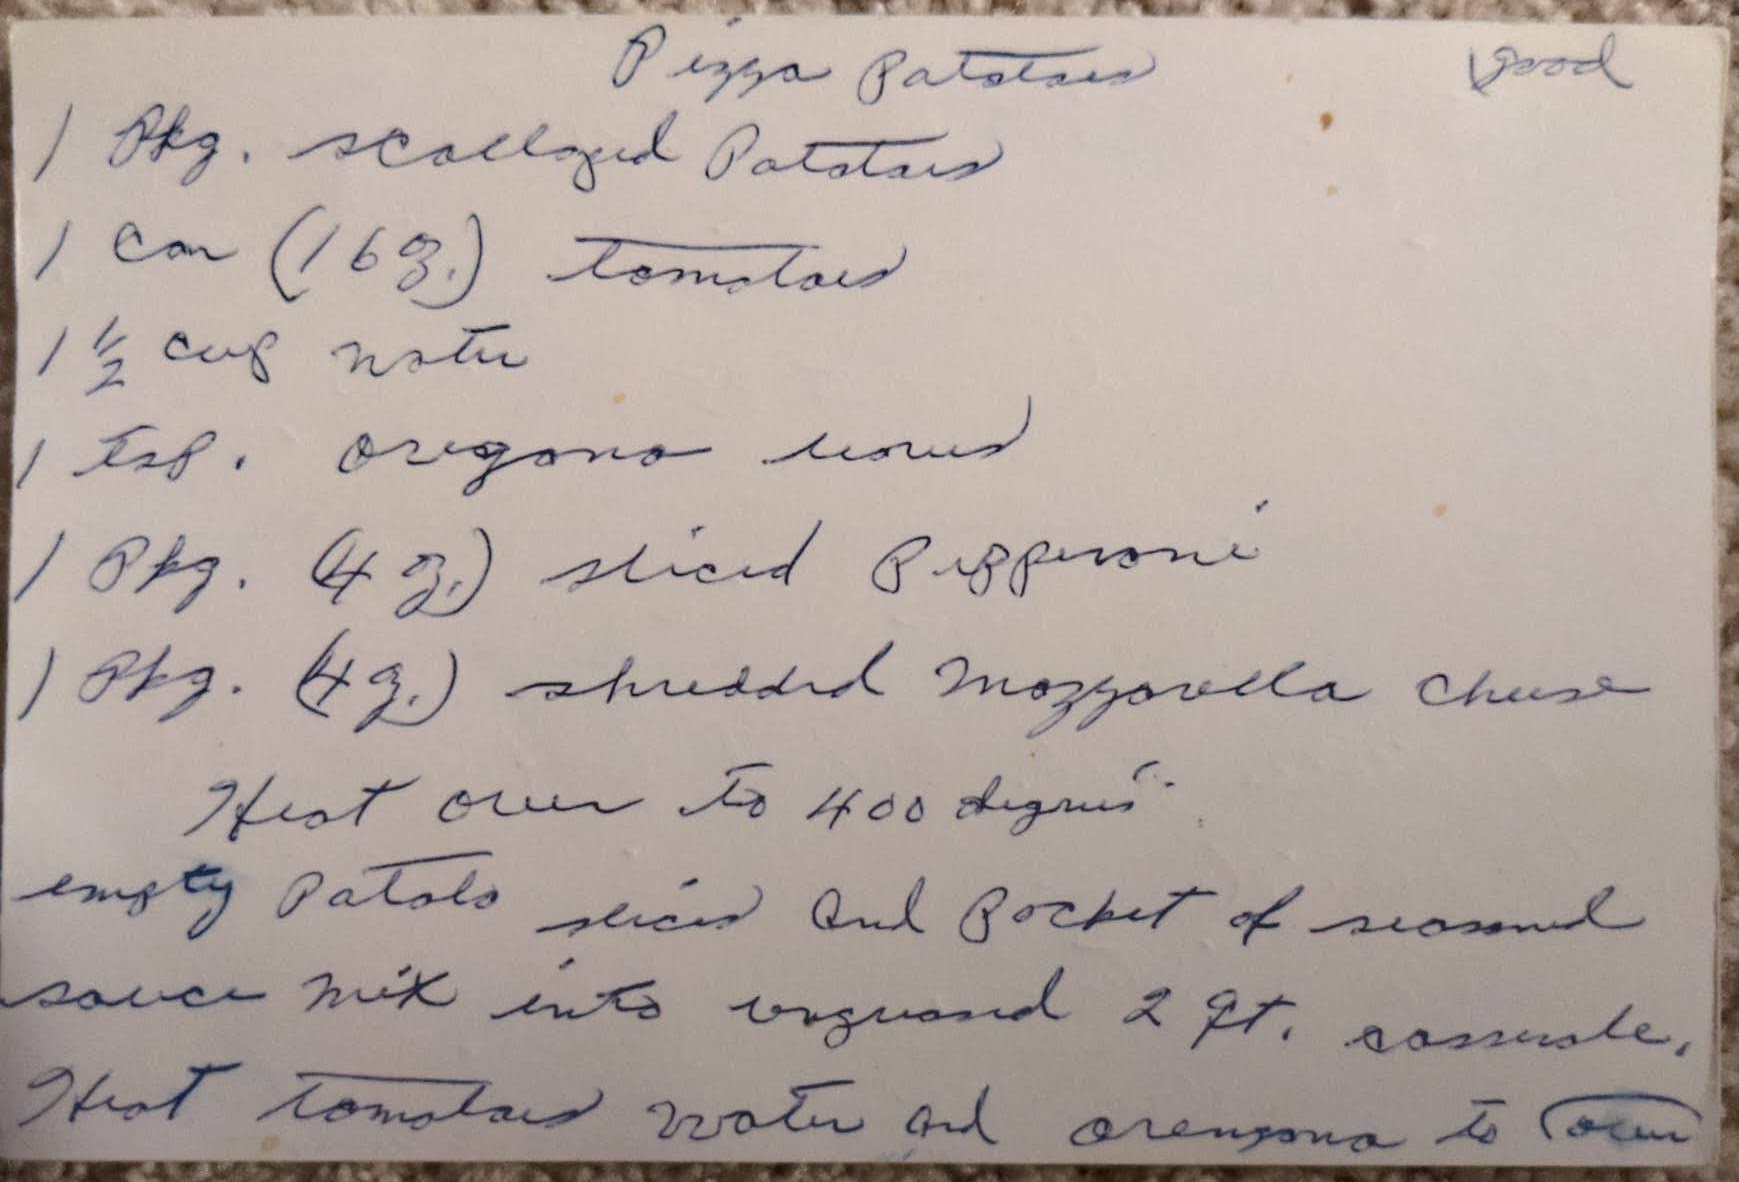 Pizza Potatoes good
1 Pkg. scalloped Potatoes
1 Can (16 oz.) tomatoes
1 1/2 cup water
1 Tsp. oregano leaves
1 Pkg. (4 oz.) sliced Pepperoni
1 Pkg. (4 oz.) shredded Mozzarella Cheese
Heat oven to 400 degrees.
empty Patato slices and Packet of seasoned
sauce mix into ungreased 2 qt. casserole.
Heat tomatoes water and orengano to over